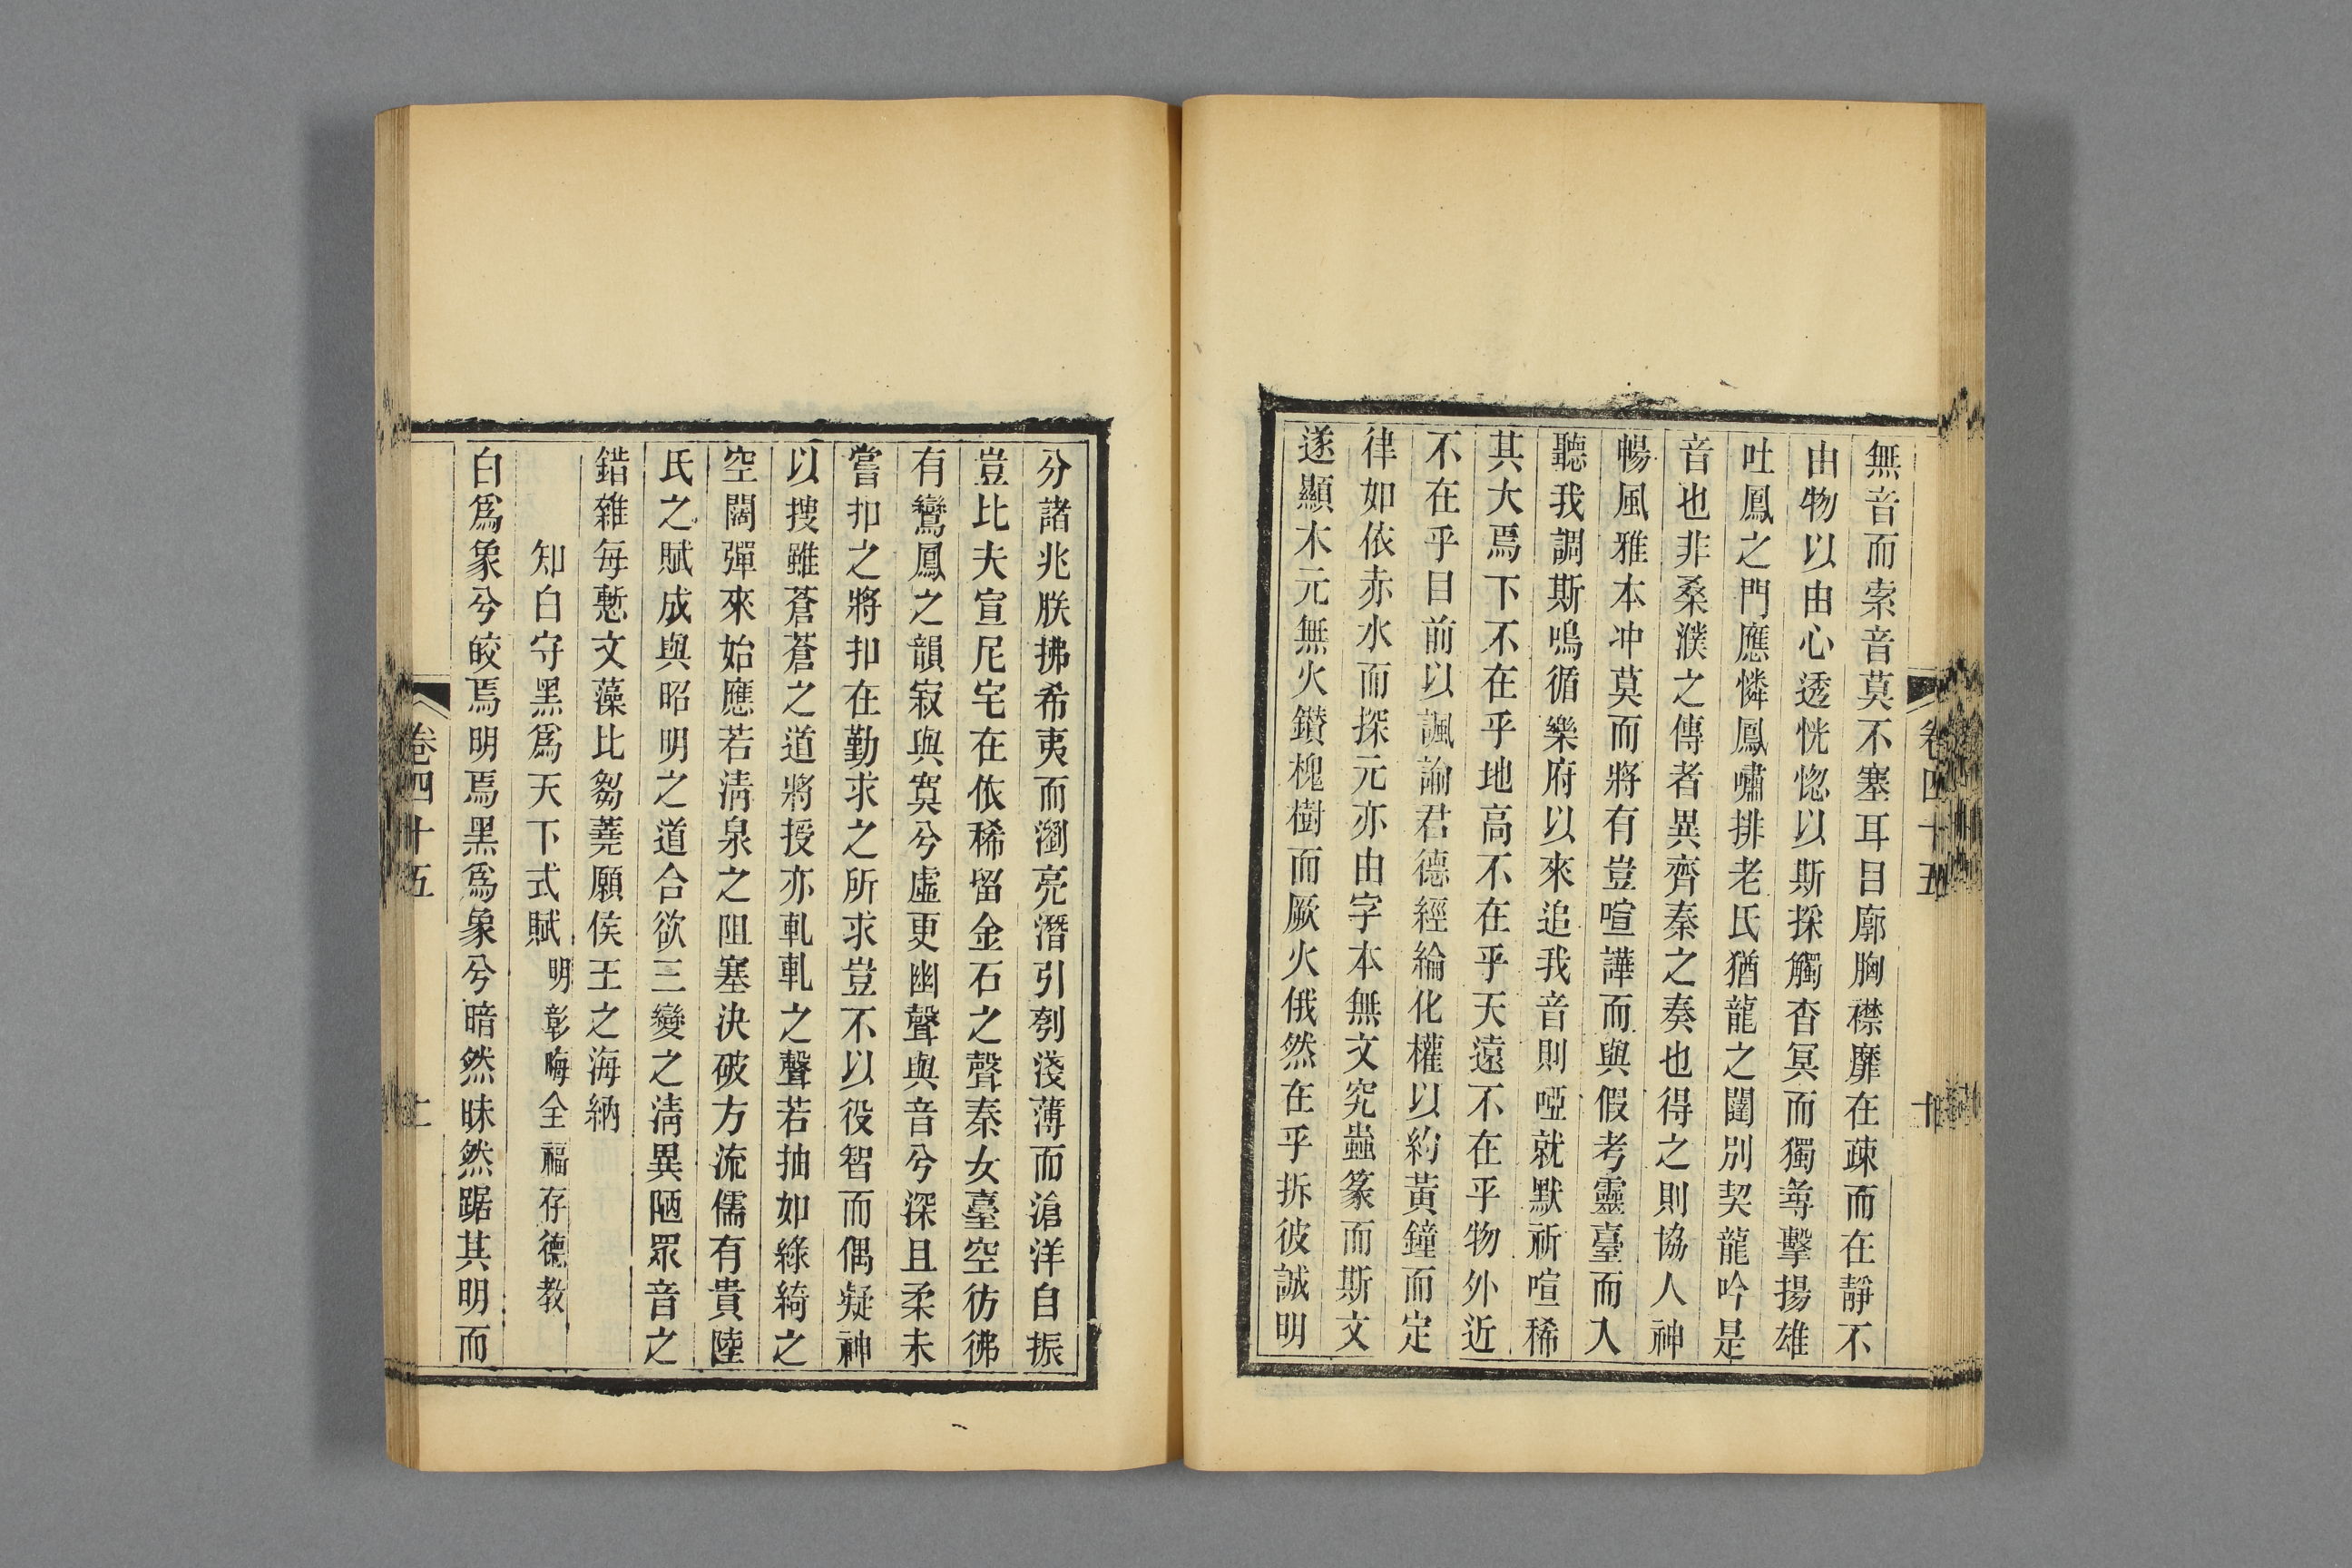 卷四十五
十
無音而索音莫不塞耳目廓胸襟靡在疎而在靜不
由物以由心透恍惚以斯採觸杳冥而獨尋擊揚雄
吐鳳之門應憐鳳嘯排老氏猶龍之闥別契龍吟是
音也非桑濮之傳者異齊秦之奏也得之則協人神
暢風雅本冲莫而將有豈喧譁而與假考靈臺而入
聽我調斯嗚循樂府以來追我音則啞就默祈喧稀
其大焉下不在乎地高不在乎天遠不在乎物外近
不在乎目前以諷諭君德經綸化權以約黃鐘而定
律如依赤水而探元亦由字本無文究蟲篆而斯文
遂顯木元無火鑚槐樹而厥火俄然在乎拆彼誠明
分諸兆朕拂希夷而瀏亮潛引刳淺薄而滄洋自振
豈比夫宣尼宅在依稀留金石之聲秦女臺空彷彿
有鸞鳳之韻寂與寞兮虛更幽聲與音兮深且柔未
嘗扣之將扣在勤求之所求豈不以役智而偶凝神
以搜雖蒼蒼之道將授亦軋軋之聲若抽如綠綺之
空闊彈來始應若淸泉之阻塞決破方流儒有貴陸
氏之賦成與昭明之道合欲三變之淸異陋眾音之
錯雜每慙文藻比芻蕘願侯王之海納
知白守黑爲天下式賦 明彰晦全福存德教
白爲象兮皎焉明焉黑爲象兮暗然昧然踞其明而
卷四十五